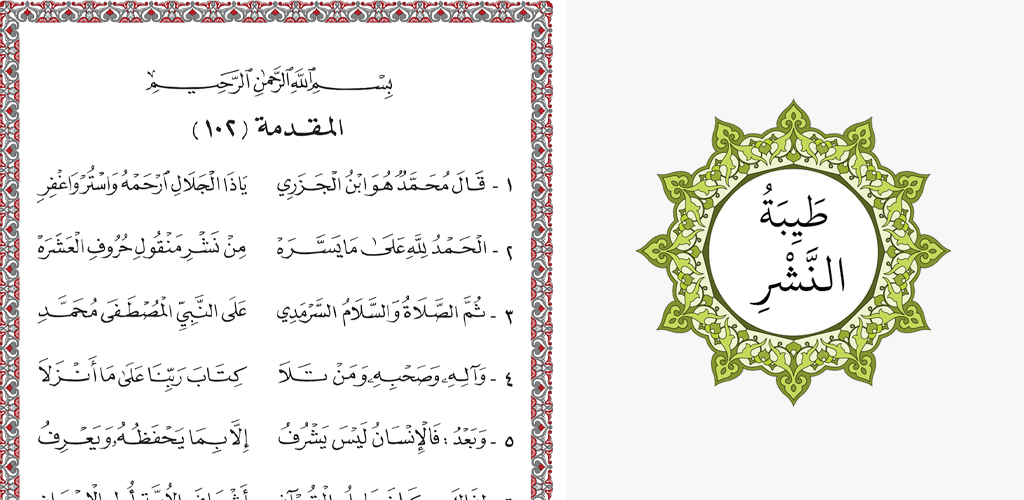 بِسْمِ اللَّهِ الرَّحْمَٰنِ الرَّحِيمِ
المقدمة (١٠٢)
١ - قَالَ مُحَمَّدٌ هُوَ ابْنُ الْجَزَرِي يَاذَا الْجَلَالِ ارْحَمْهُ وَاسْتُرْ وَاغْفِرِ
٢ - الْحَمْدُ لِلَّهِ عَلَىٰ مَا يَسَّرَهْ مِنْ نَشْرِ مَنْقُولِ حُرُوفِ الْعَشَرَهْ
٣ - ثُمَّ الصَّلَاةُ وَالسَّلَامُ السَّرْمَدِي عَلَى النَّبِيِّ الْمُصْطَفَى مُحَمَّدِ
٤ - وَآلِهِ وَصَحْبِهِ وَمَنْ تَلَا كِتَابَ رَبِّنَا عَلَىٰ مَا أَنْزَلَا
٥ - وَبَعْدُ : فَالْإِنْسَانُ لَيْسَ يَشْرُفُ إِلَّا بِمَا يَحْفَظُهُ وَيَعْرِفُ
طَيِّبَةُ
النَّشْرِ